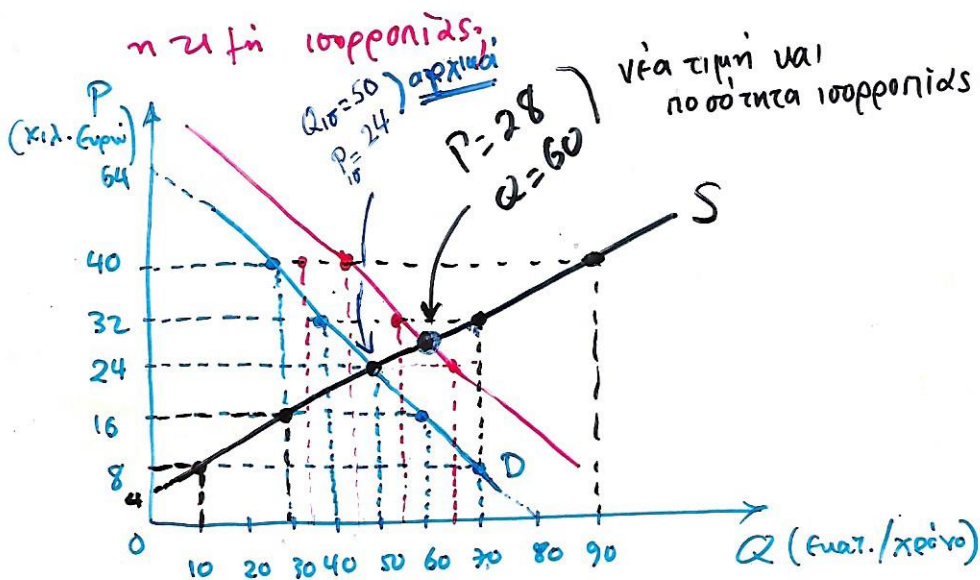 η τιμή ισορροπίας.
Qισ=50
Pισ=24
αρχικά
P=28
Q=60
νέα τιμή και
ποσότητα ισορροπίας
P
(χιλ. Ευρώ)
64
40
32
24
16
8
4
0
S
D
10 20 30 40 50 60 70 80 90
Q (εκατ./χρόνο)